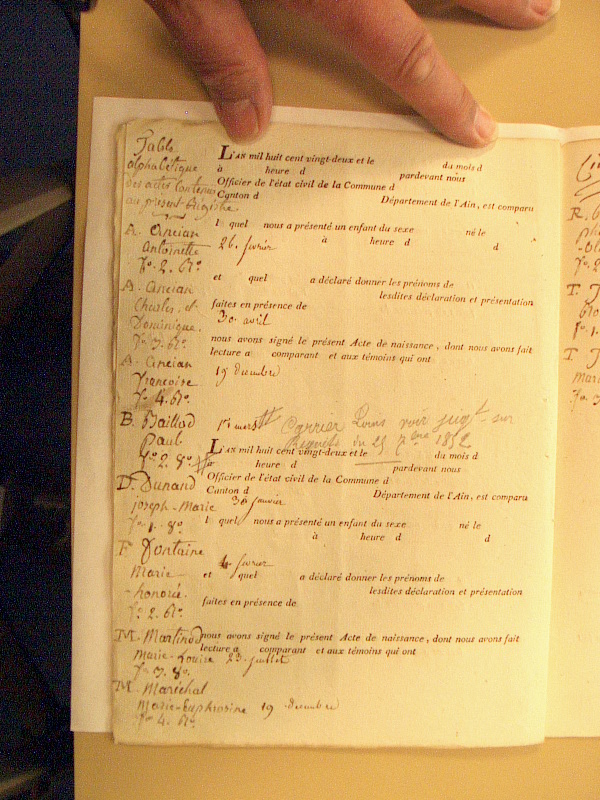 Table
alphabétique
des actes Contenus
au présent Registre
L'AN mil huit cent vingt-deux et le du mois d
à heure d pardevant nous
Officier de l'état civil de la Commune d
Canton d Département de l'Ain, est comparu
l quel nous a présenté un enfant du sexe né le
à heure d d
A. Ancian
Antoinette 26. fevrier
fo. 2. Ro.
et quel a déclaré donner les prénoms de
lesdites déclaration et présentation
faites en présence de
A. Ancian
Charles, et
Dominique. 30. avril
fo. 3. Ro.
nous avons signé le présent Acte de naissance, dont nous avons fait
lecture a comparant et aux témoins qui ont
A. Ancian
Françoise 19 décembre
fo. 4. Ro.
B. Baillod 1er mars
Paul
fo. 2. Vo.
Carrier Louis voir jugt. sur
Requête du 25 7bre 1852
L'AN mil huit cent vingt-deux et le du mois d
heure d pardevant nous
Officier de l'état civil de la Commune d
Canton d Département de l'Ain, est comparu
D. Dunand
joseph-Marie 30 janvier
fo. 1. Vo.
l quel nous a présenté un enfant du sexe né le
à heure d d
F. Fontaine
Marie 4 fevrier
-honorée.
fo. 2. Ro.
et quel a déclaré donner les prénoms de
lesdites déclaration et présentation
faites en présence de
M. Martinod
Marie-Louise 23. juillet
fo. 3. Vo.
nous avons signé le présent Acte de naissance, dont nous avons fait
lecture a comparant et aux témoins qui ont
M. Maréchal
Marie-Euphrosine 19 décembre
fo. 4. Ro.